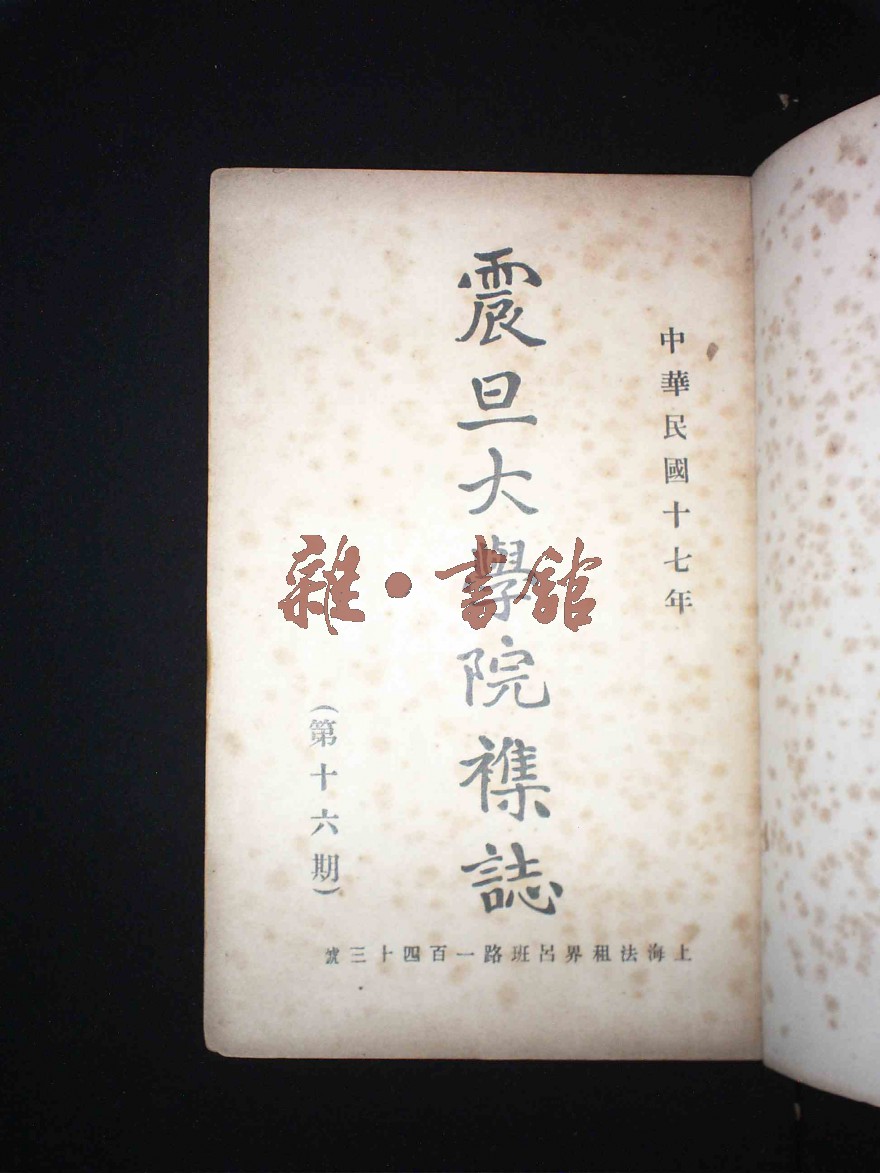 中華民國十七年
震旦大學院襍誌
(第十六期)
上海法租界呂班路一百四十三號
雜·書館